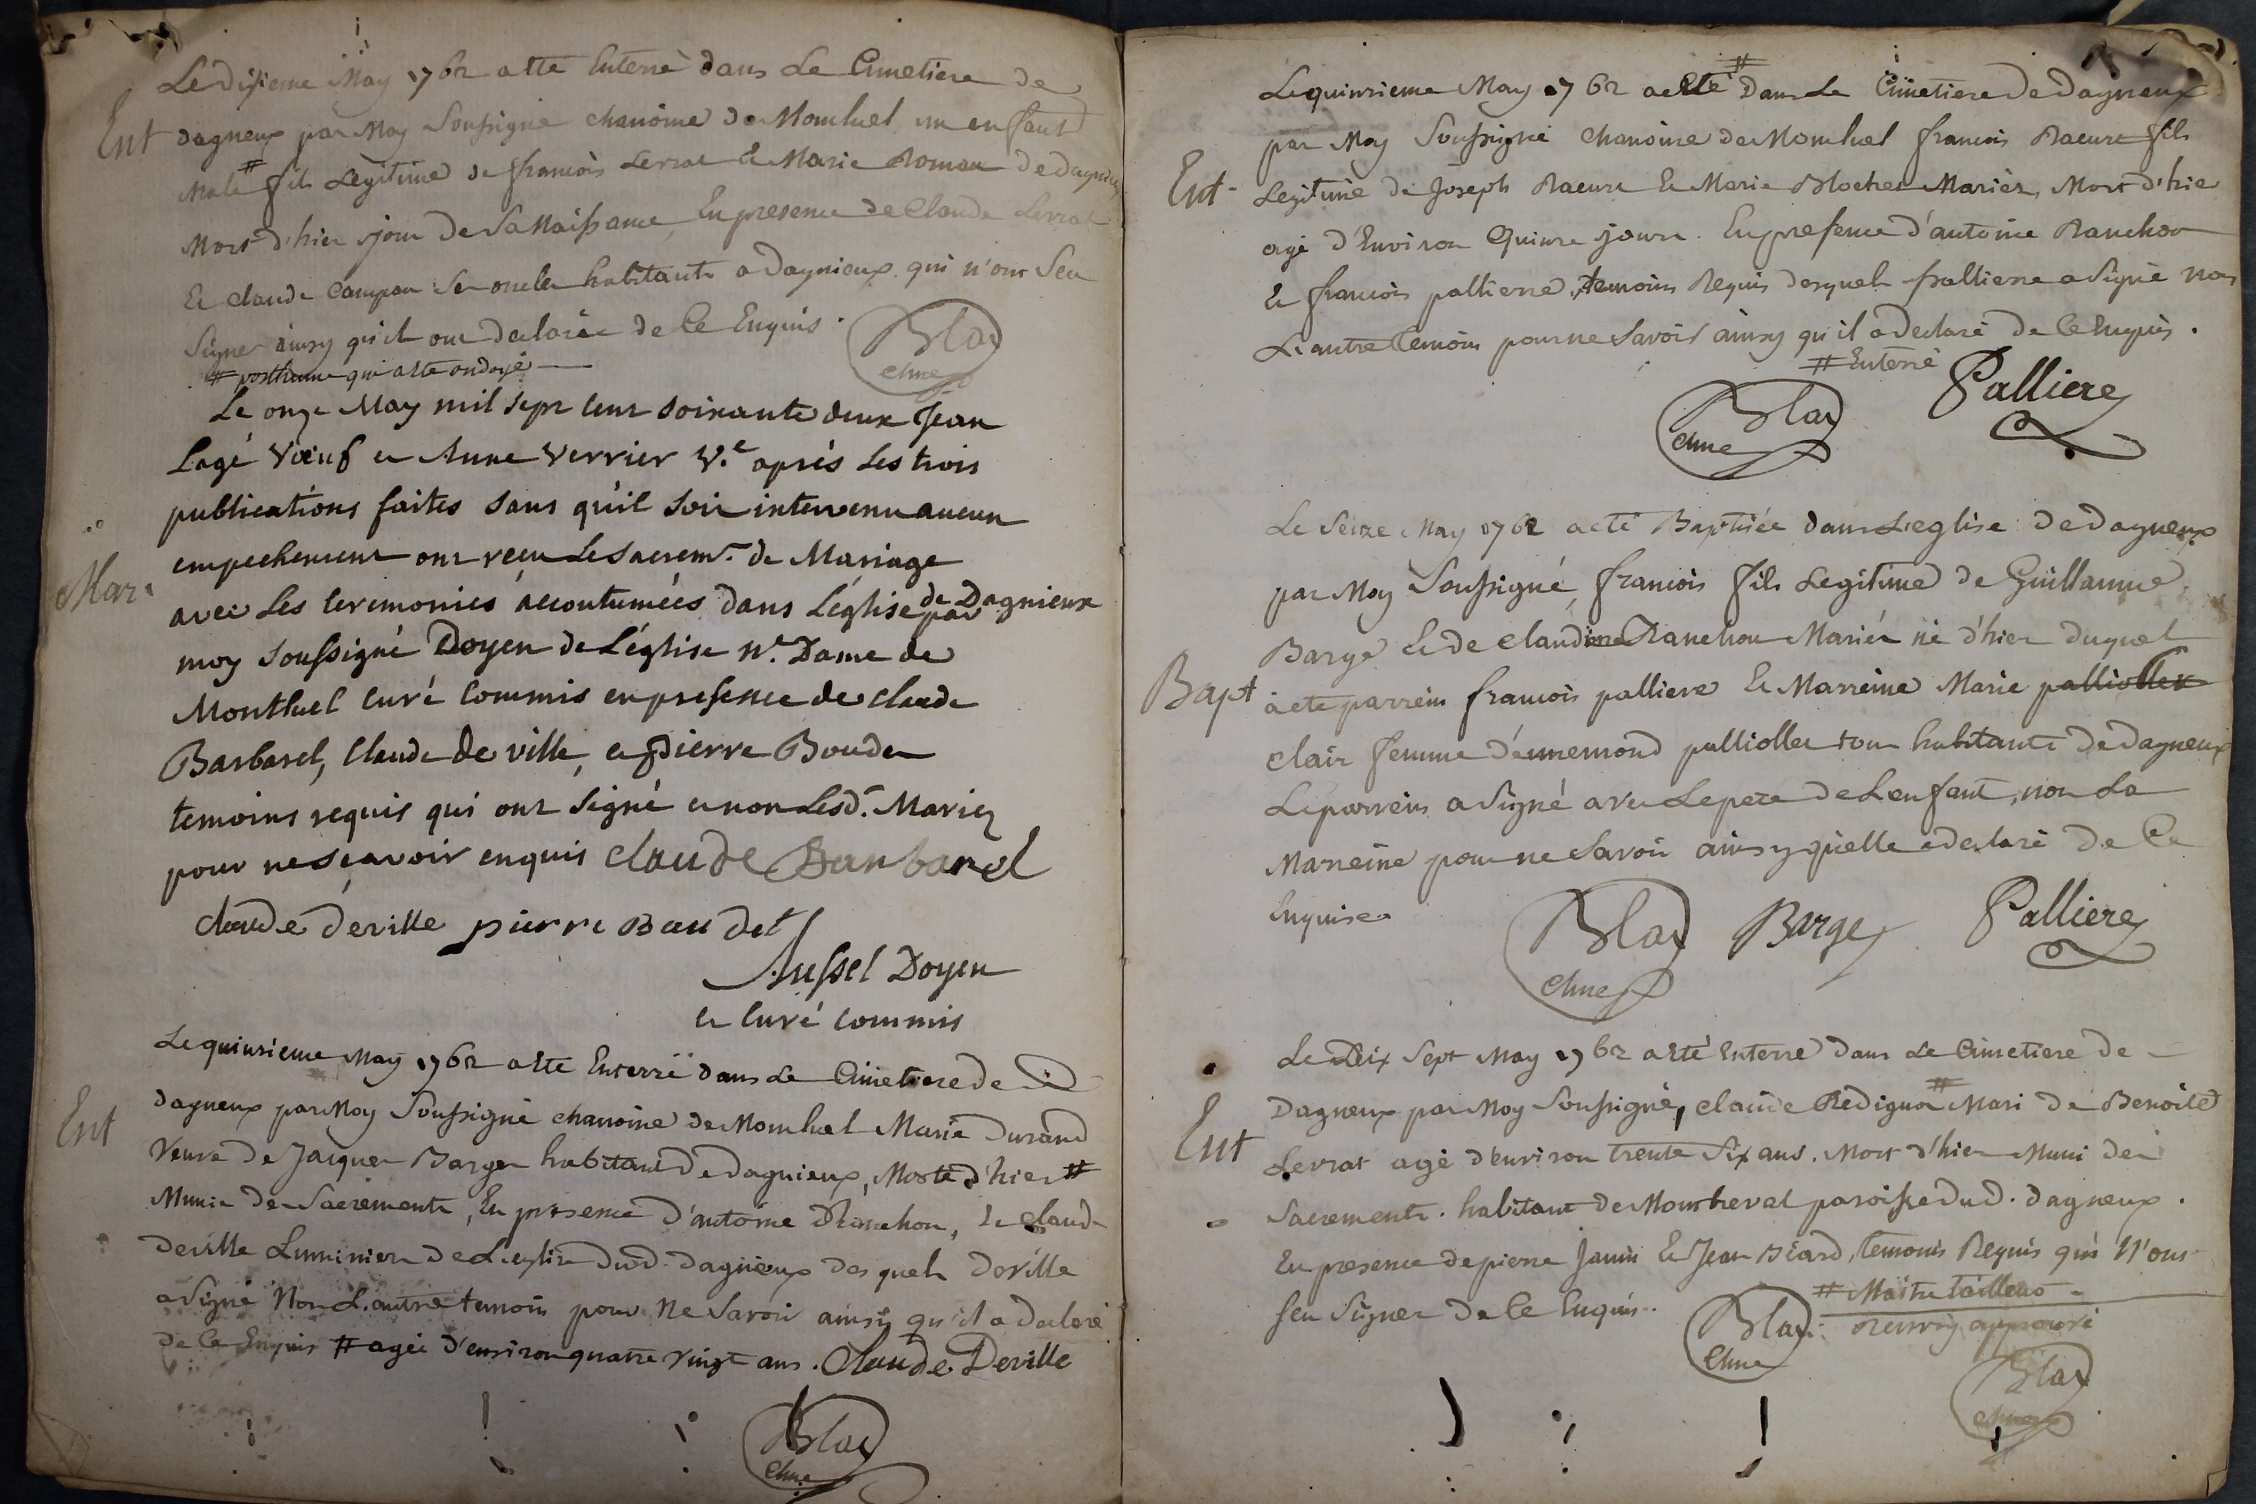 Le Disieme May 1762 a ette Enterré dans Le Cimetiere de
Ent
dagneux par Moy Soussigné chanoine de Momluel un enfant
Male # fils Legitime de françois Levrat & Marie Roman de Dagnieu
Mort d'hier jour de Sa Naissance, En presence de Claude Levrat
& claude Campan Ses oncles habitants a Dagnieux qui n'ont Seu
Signer ainsy qu'il ont declarée de Ce Enquis.
# posthume qui a ette ondoyé
Blay
chne
Le onze May mil sept cent soixante deux Jean
Lagé Vœuf et Anne Verrier V.e après Les trois
publications faites sans qu'il soit intervenu aucun
empechement ont reçu Le sacrem.t de Mariage
Mar.
avec Les ceremonies accoutumées dans L'église de Dagnieux par
moy soussigné Doyen de L'église N.e Dame de
Montluel curé commis en presence de claude
Barbarel, claude de ville, et pierre Boudet
temoins requis qui ont signé et non Lesd.t Mariez
pour ne sçavoir enquis claude Barbarel
claude deville pierre Baudet
Aussel Doyen
et curé commis
Le quinsieme May 1762 a ette Enterré dans Le Cimetiere de
Ent
dagneux par Moy Soussigné chanoine de Momluel Marie Durand
Veuve de Jacques Barge habitant de Dagnieux, Morte d'hier #
Munie des Sacrements, En presence d'antoine Planchon, & claude
deville Luminier de L'eglise dud. dagnieux des quels deville
a Signé Non L'autre temoin pour Ne Savoir ainsy qu'il a declaré
de Ce Enquis # agée d'environ quatre vingt ans. Claude Deville
Blay
chne
Le quinsieme May 1762 a etté # Dans Le Cimetiere de Dagneux
par Moy Soussigné chanoine de Momluel françois Racure fils
Ent
Legitime de Joseph Racure & Marie Blochet Mariés, Mort d'hie
agé d'Environ Quinze jours. En presence d'antoine Planchon
& françois pallierre, temoins Requis desquels pallierre a Signé Non
L'autre temoin pour ne Savoir ainsy qu'il a declaré de Ce Enquis.
# Enterré
Blay
chne
Palliere
Le Seize May 1762 a eté Baptisée dans L'eglise de dagneux
par Moy Soussigné, françois fils Legitime de Guillaume
Barge & de claudine Planchon Mariés né d'hier duquel
Bapt
a ete parrein françois palliere & Marreine Marie palliollet
clair femme d'ennemond palliollet tous habitants de dagneux
Le parrein a Signé avec Le pere de L'enfant, non La
Marreine pour ne Savoir ainsy qu'elle a declaré de Ce
Enquise
Blay
chne
Barge
Palliere
Le Dix Sept May 1762 a etté Enterré dans Le Cimetiere de
Ent
Dagneux par Moy Soussigné, claude Redignon # Mari de Benoite
Levrat agé d'environ trente Six ans. Mort d'hier Muni des
Sacrements. habitant de Momtheval paroisse dud. dagneux.
En presence de pierre Janin & Jean Béard, temoins Requis qui N'ont
Seu Signer de Ce Enquis.
# Maitre tailleur
renvoy approuvé
Blay
chne
Blay
chne